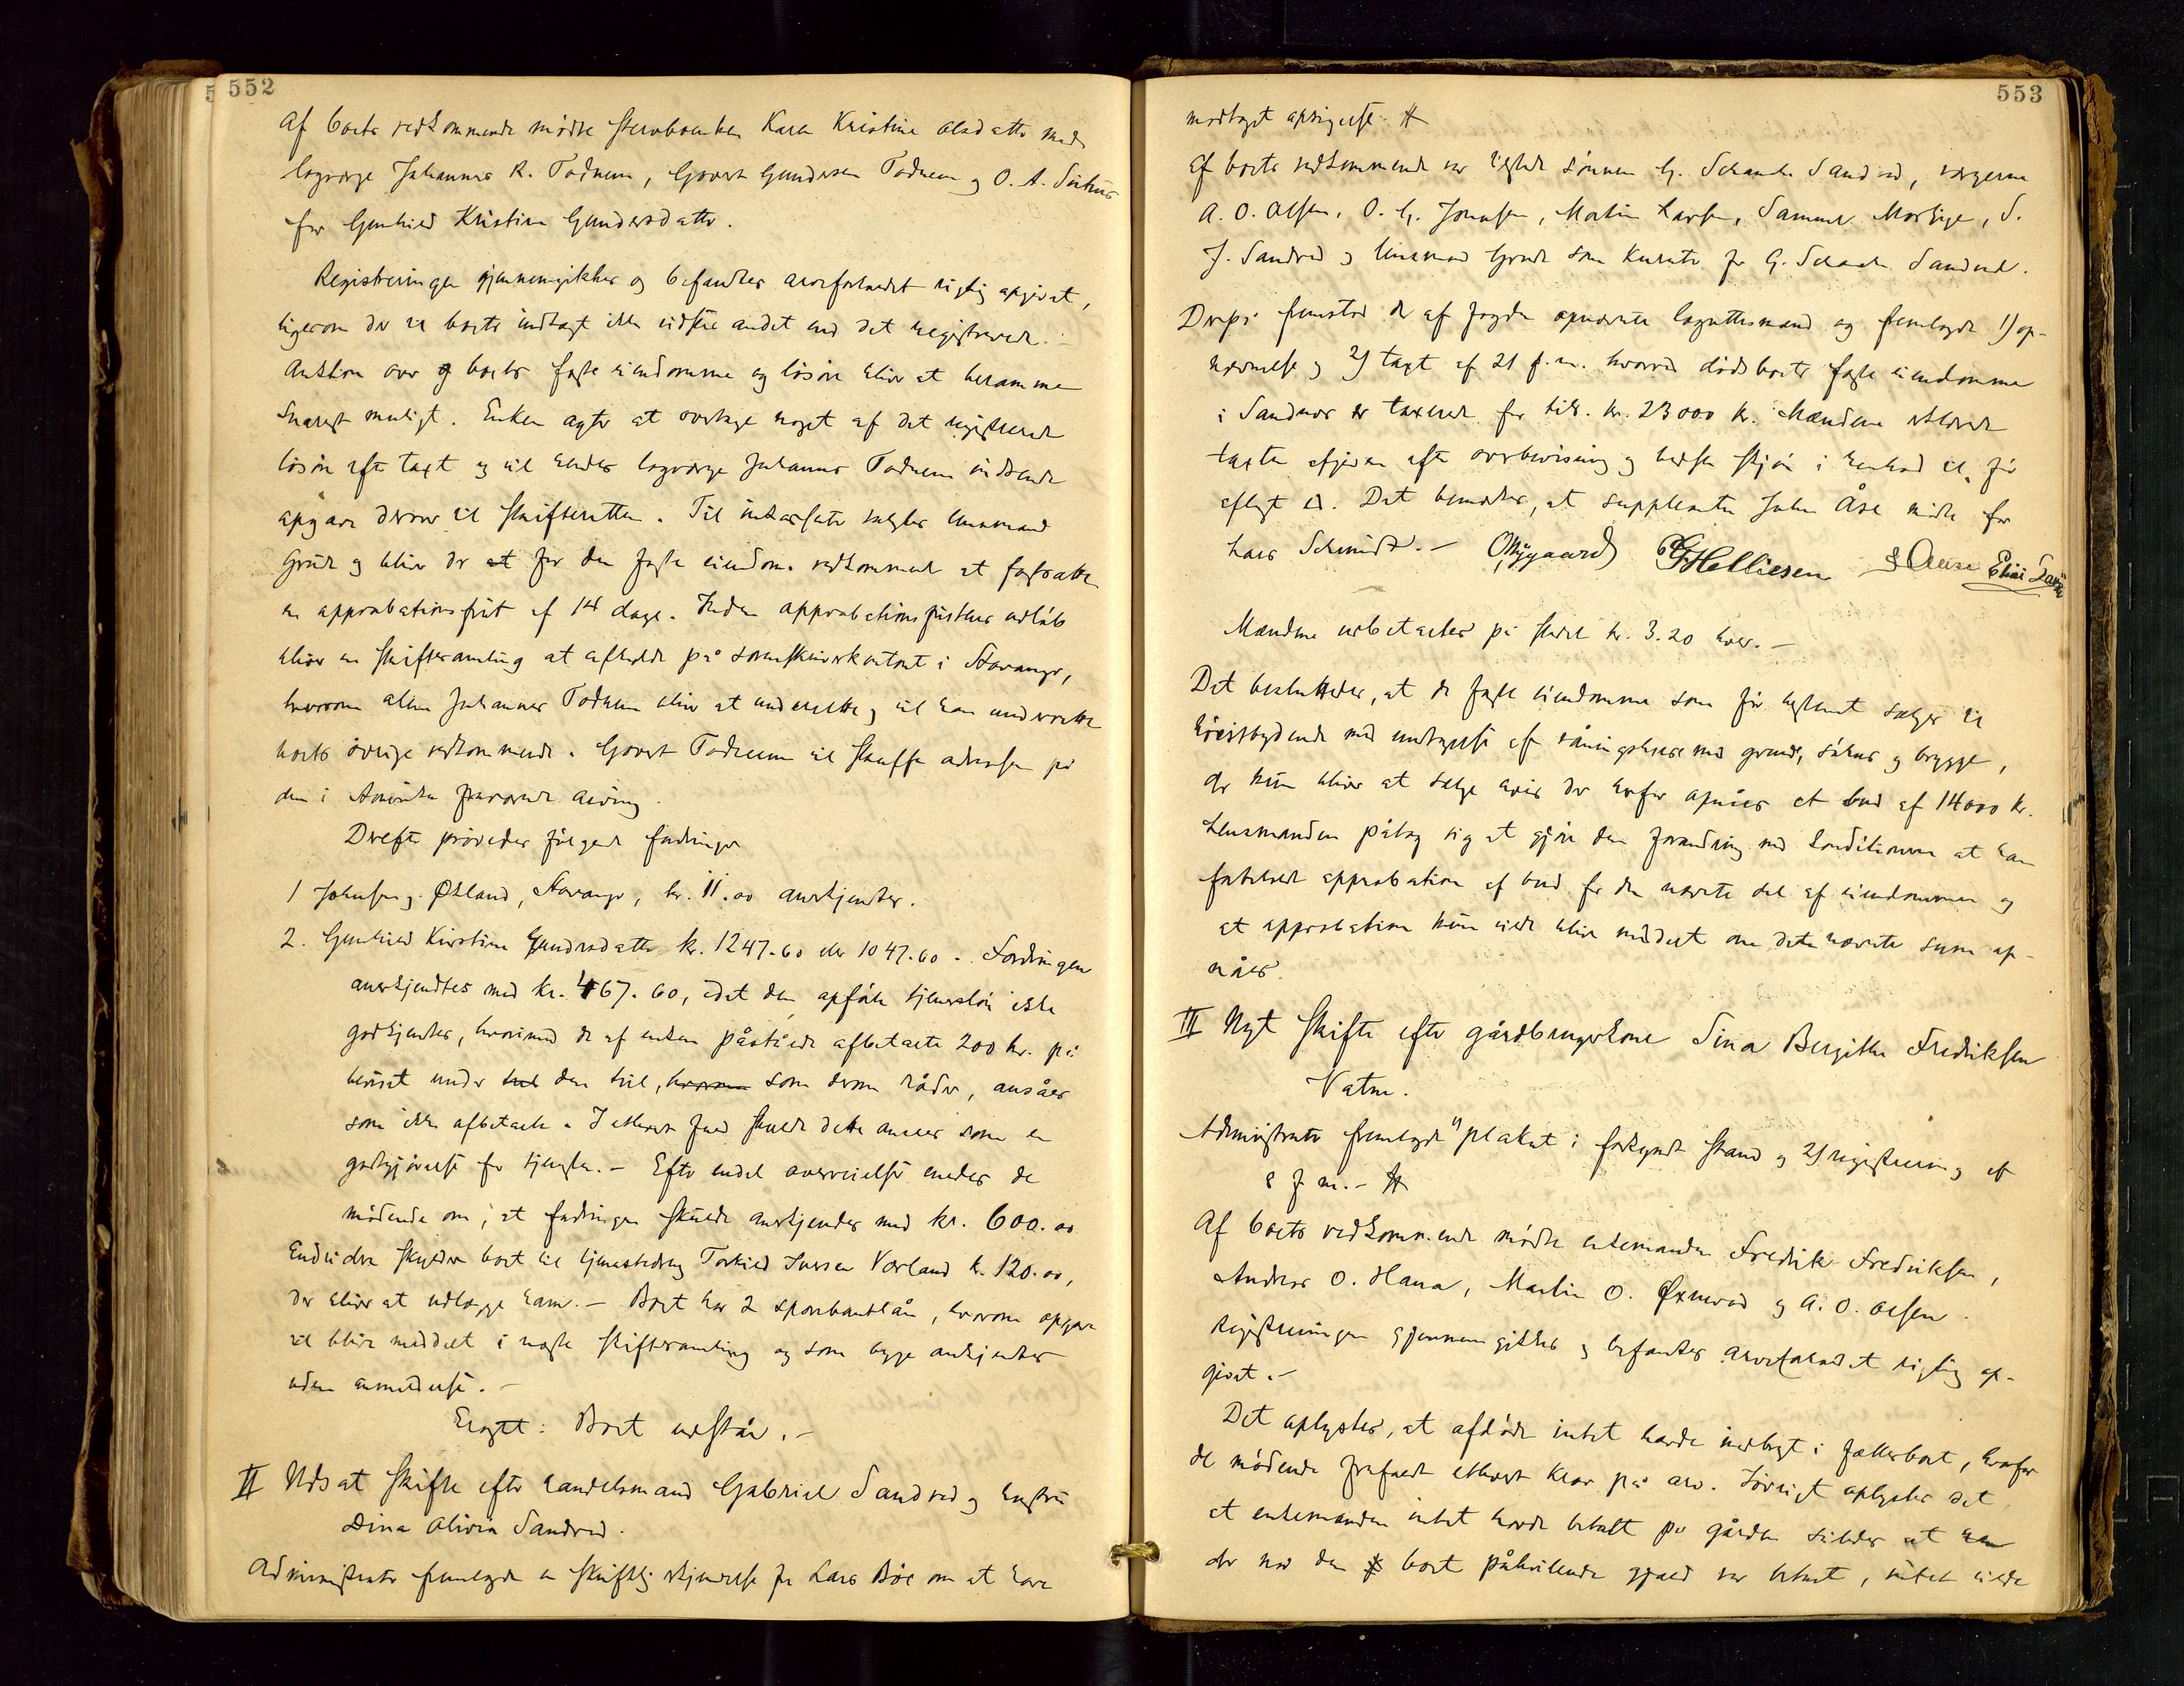 552
Af boets vedkommende mødte stervboenken Karen Kristine Olsdatter med
lagværge Johannes R. Todnem, Govert Gundersen Todnem og O. A. Sirtius
for Gunhild Kristine Gundersdatter.
Registreringen gjennemgikkes og befandtes arveforholdet rigtig opgivet,
ligesom der til boets indtægt ikke vidstes andet end det registrerede.
Auktion over boets faste eiendomme og løsøre bliver at beramme
snarest muligt. Enken agter at overtage noget af det registrerede
løsøre efter taxt og vil hendes lagværge Johannes Todnem indsende
opgave derover til skifteretten. Til inkassator valgtes lensmand
Grude og bliver der for den faste eiendoms vedkommende at fastsætte
en approbationsfrist af 14 dage. Inden approbationsfristens udløb
bliver en skiftesamling at afholde på sorenskriverkontoret i Stavanger,
hvorom alene Johannes Todnem bliver at underrette og vil han underrette
boets øvrige vedkommende. Govert Todnem vil skaffe adressen på
den i Amerika fraværende arving.
Derefter prøvedes følgende fordringer
1 Johnsen & Økland, Stavanger, kr. 11.00 anerkjendtes.
2. Gunhild Kirstine Gundersdatter kr. 1247.60 eller 1047.60. Fordringen
anerkjendtes med kr. 467.60, idet den opførte tjenerløn ikke
godkjendtes, hvorimod de af enken påståede afbetalte 200 kr. på
beviset under den tvil, som derom råder, ansåes
som ikke afbetalte. I ethvert fald skulde dette ansees som en
godtgjørelse for tjenesten.- Efter endel overveielse enedes de
mødende om, at fordringen skulde anerkjendes med kr. 600.00
Endvidere skylder boet til tjenestedreng Torkild Iversen Vorland kr. 120.00,
der bliver at udlægge ham.- Boet har 2 sparebanklån, hvorom opgave
vil blive meddelt i næste skiftesamling og som begge ankjendtes
uden anmeldelse.-
Eragtet: Boet udstår.-
II Udsat skifte efter handelsmand Gabriel Sandved og hustru
Dina Olivia Sandved.
Administrator fremlagde en skriftlig erkjendelse fra Lars Bøe om at have
553
modtaget opsigelse.
Af boets vedkommende var tilstede sønnen G. Schancke Sandved, værgerne
A. O. Olsen, O. G. Jonassen, Martin Larsen, Samuel, S.
J. Sandved og lensmand Grude som kurator for G. Schancke Sandved.
Derpå fremstod de af fogden opnævnte lagrettesmænd og fremlagde 1) op-
nævnelse og 2) taxt af 21 f.m. hvorved dødsboets faste eiendomme
i Sandnes er taxeret for tils. kr. 23000 kr. Mændene erklærede
taxten afgiven efter overbevisning og bedste skjøn i henhold til før
aflagt ed. Det bemærkes, at supplianten John Åse mødte for
Lars Schmidt.- GHelliesen
Mændene udbetaltes på stedet kr. 3.20 hver.-
Det besluttedes, at de faste eiendomme som før bestemt sælges til
høistbydende med undtagelse af våningshuset med grund, søhus og brygge,
der kun bliver at sælge hvis der herfor opnåes et bud af 14000 kr.
Lensmanden påtog sig at gjøre den forandring ved konditionerne at han
forbeholdt approbation af bud for den nævnte del af eiendommen og
at approbation kun vilde blive meddelt om dette nævnte sum op-
nåes.
III Nyt skifte efter gårdbrugerkone Sina Bergitte Fredriksen
Vatne.
Administrator fremlagde 1) plakat i forkyndt stand og 2) registrering af
8 f m.-
Af boets vedkommende mødte enkemanden Fredrik Fredriksen,
Andreas O. Hana, Martin O. Øxnevad og A. O. Olsen.
Registreringen gjennemgikkes og befandtes arveforholdet rigtig op-
givet.-
Det oplystes, at afdøde intet havde indbragt i fællesboet, hvorfor
de mødende frafaldt ethvert krav på arv. Iøvrigt oplystes det
at enkemanden intet havde betalt på gården således at han
der når den boet påhvilende gjæld var betalt, intet vilde